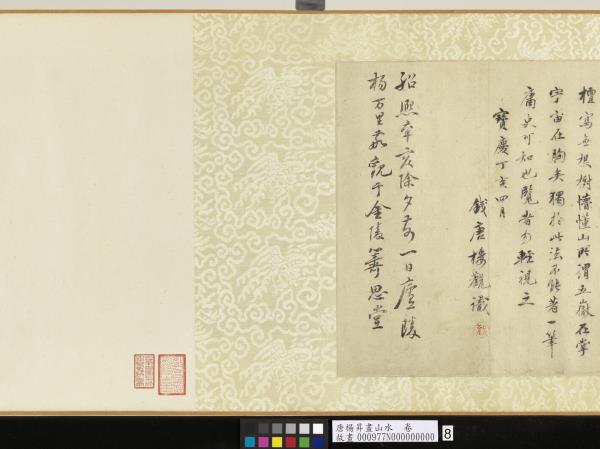 檀寫無根樹懵懂山所謂五嶽在掌
宇宙在胸矣獨於此法不能著一筆
庸史可知也覽者勿輕視之
寶慶丁亥四月
錢唐樓觀識
紹熙辛亥除夕前一日廬陵
楊万里敬觀于金陵籌思堂
唐楊昇畫山水 卷
故畫 000977N000000000
8